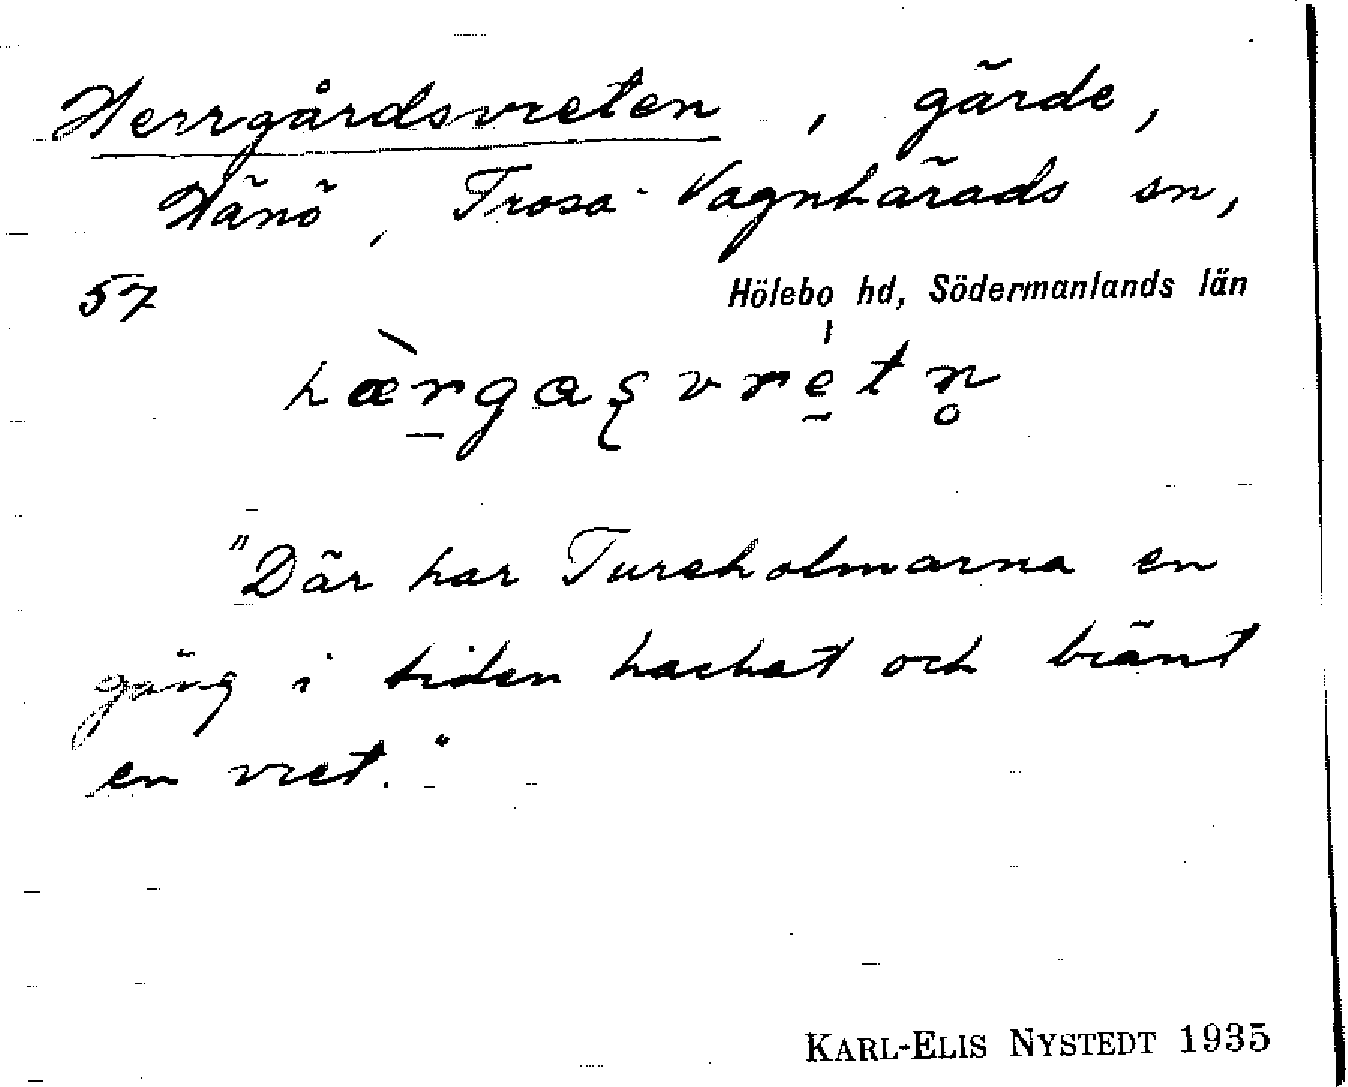 Herrgårdsvreten, gärde,
Hänö, Trosa-Vagnhärads sn,
57 Hölebo hd, Södermanlands län
hæ̀rgaʂvre̍tn̥
"Där har Tureholmarna en
gång i tiden hackat och bränt
en vret."
KARL-ELIS NYSTEDT 1935